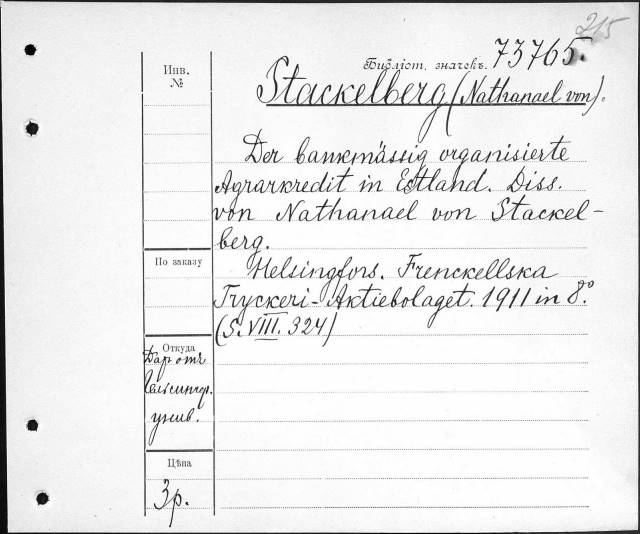 215
Библіот. значекъ. 73765.
Инв.
№
Stackelberg (Nathanael von).
Der bankmässig organisierte
Agrarkredit in Estland. Diss.
von Nathanael von Stackel-
berg.
По заказу
Helsingfors. Frenckellska
Tryckeri-Aktiebolaget. 1911 in 8.º
(S. VIII. 324)
Откуда
Даръ отъ
Гельсингф.
унив.
Цѣна
3р.